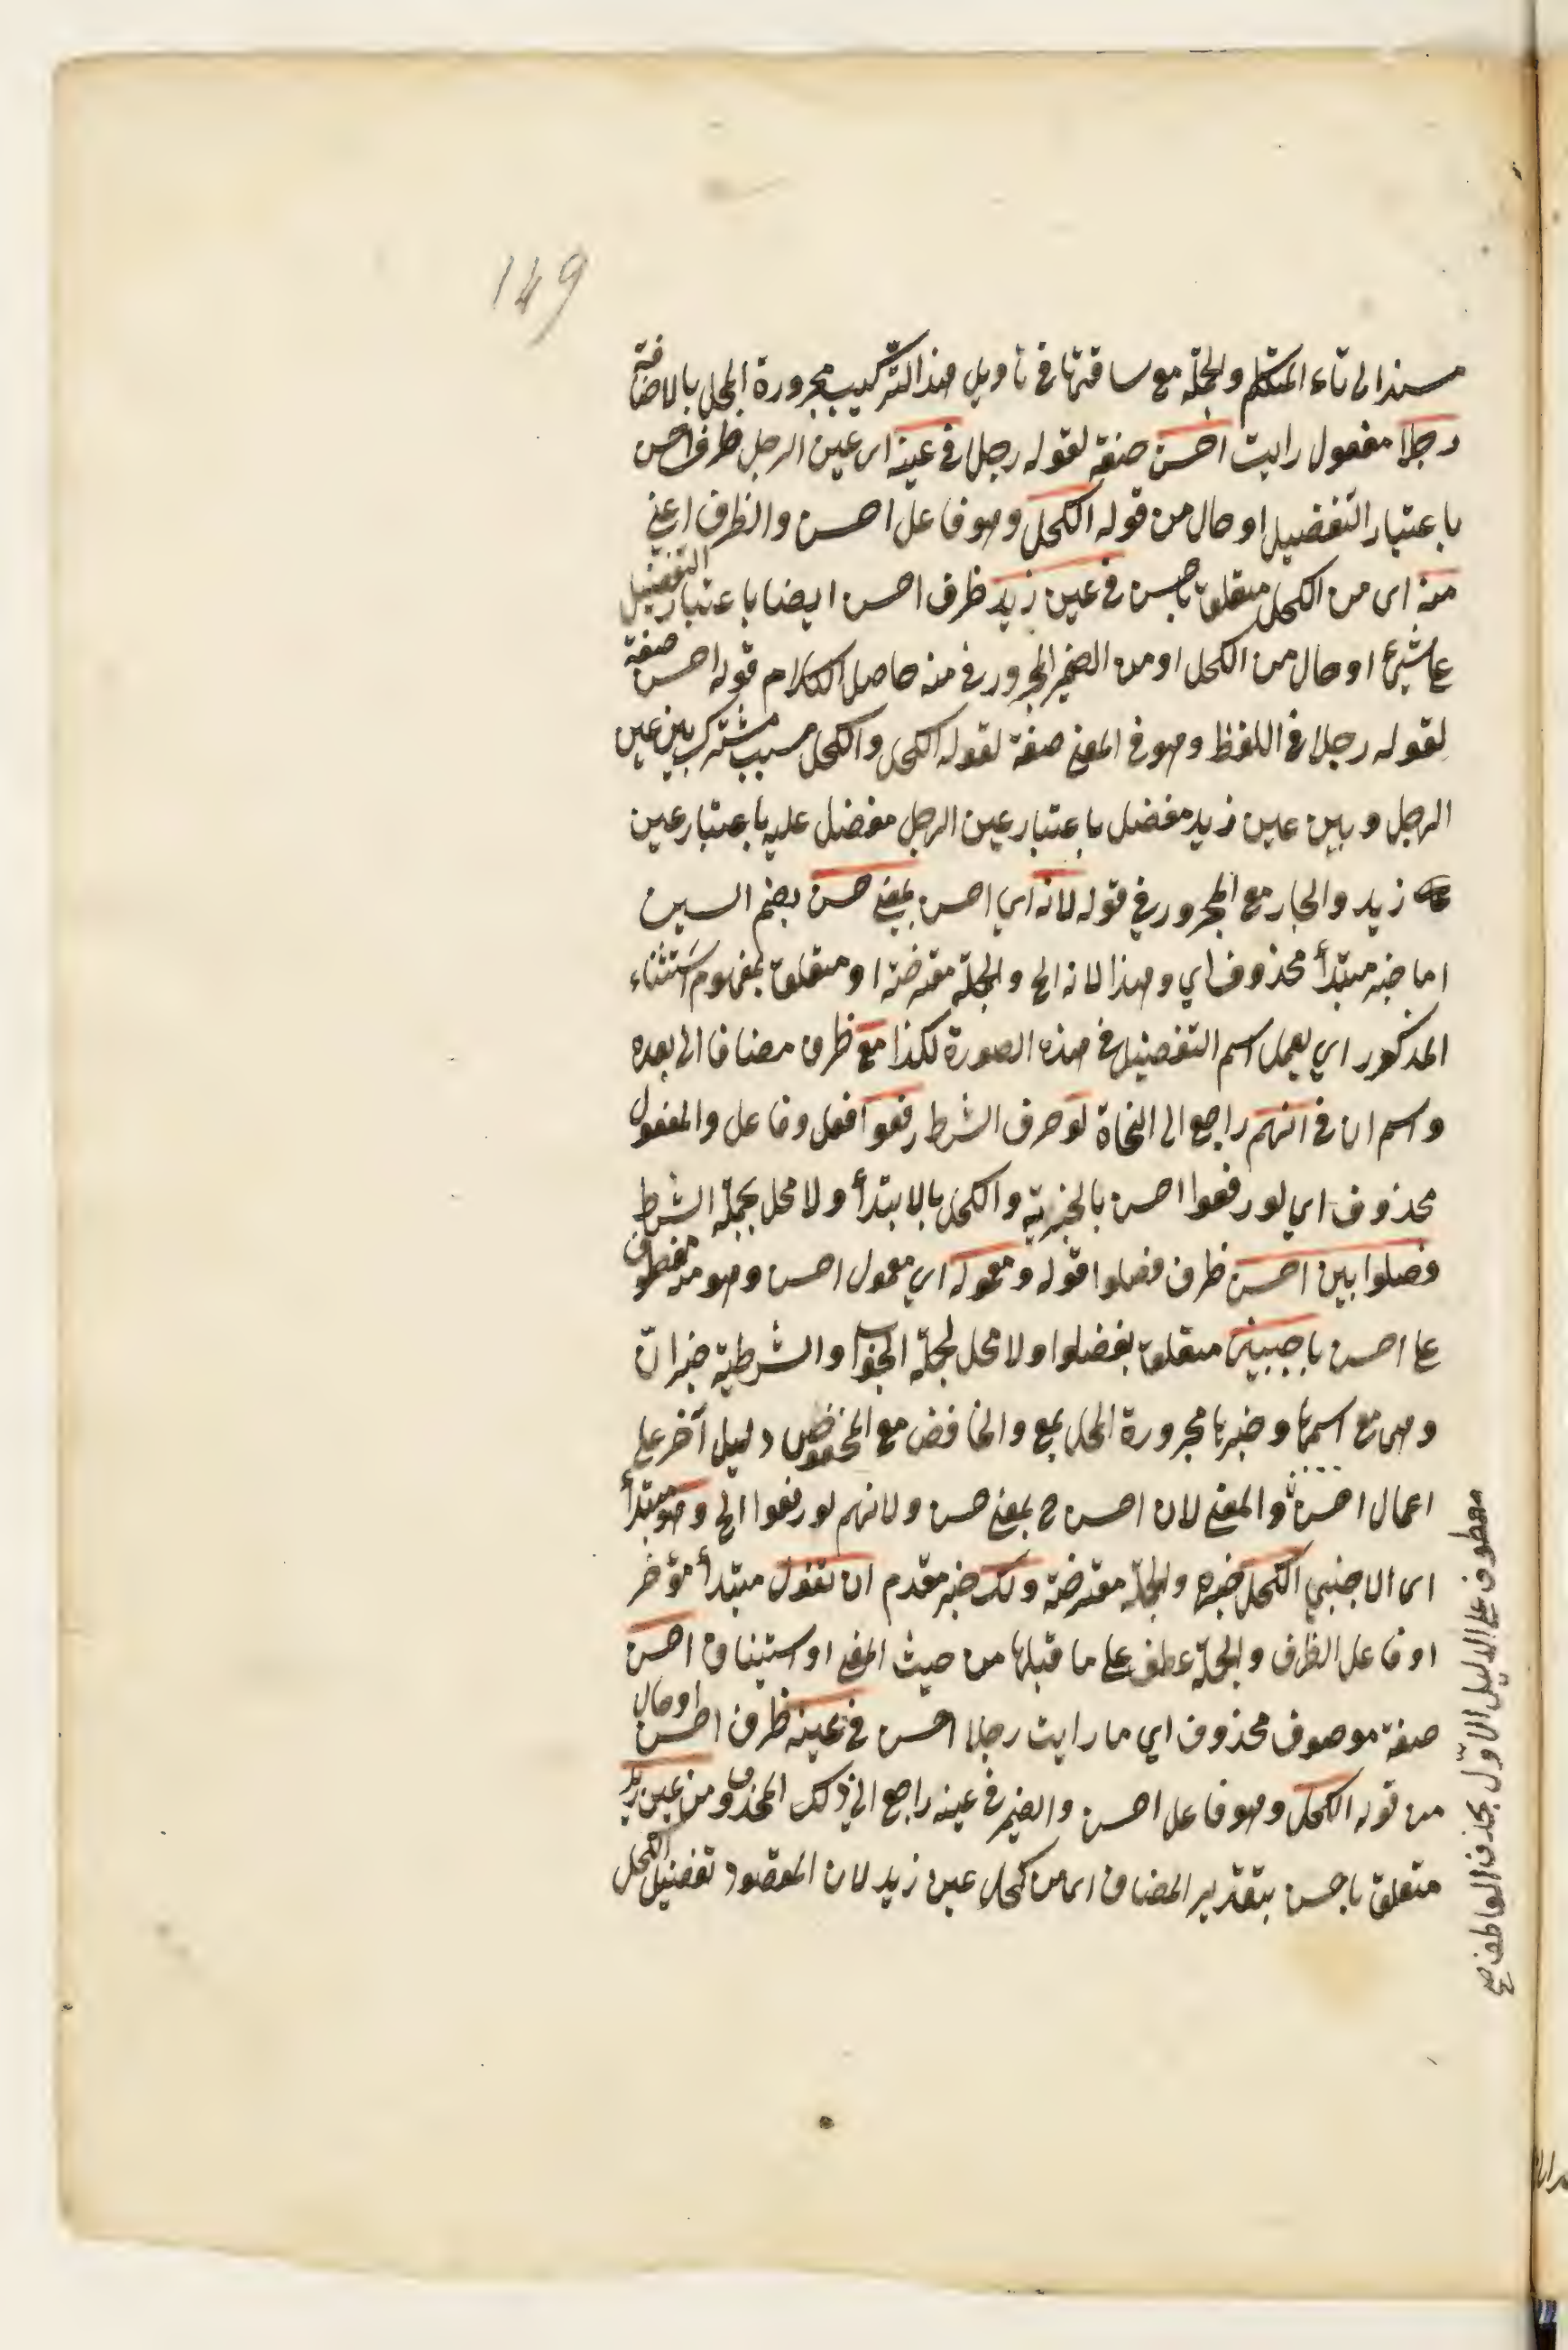 149
مسندا الى تاء المتكلم والجملة مع ساقتها في تأويل هذا التركيب مجرورة المحل بالاضافة
رجلا مفعول رايت احسن صفة لقوله رجلا في عينه اى عين الرجل ظرف احسن
باعتبار التفضيل او حال من قوله الكحل وهو فاعل احسن والظرف اعني
منه اى من الكحل متعلق باحسن في عين زيد ظرف احسن ايضا باعتبار التفضيل
او حال من الكحل او من الضمير المجرور في منه حاصل الكلام قوله احسن صفة
لقوله رجلا في اللفظ وهو في المعنى صفة لقوله الكحل والكحل مسبب مشترك بين عين
الرجل وبين عين زيد مفضل باعتبار عين الرجل مفضل عليه باعتبار عين
زيد والجار مع المجرور في قوله لانه اي احسن بمعنى حسن بضم السين
اما خبر مبتدأ محذوف اي وهذا لانه الح والجملة معترضة او متعلق بمفهوم استثناء
المذكور اي يعمل اسم التفضيل في هذه الصورة لكذا مع ظرف مضاف الى بعده
واسم ان في انهم راجع الى النحاة لو حرف الشرط رفعوا فعل وفاعل والمفعول
محذوف اي لو رفعوا احسن بالخبرية والكحل بالابتدأ ولا محل بجملة الشرط
فصلوا بين احسن ظرف فصلوا قوله ومعموله اي معمول احسن وهو منه معطوف
عا احسن باجنبي متعلق بفصلوا ولا محل لجملة الجواب والشرطية خبر انّ
وهى مع اسمها وخبرها مجرورة المحل بمع والخافض مع المخفوض دليل آخر على
اعمال احسن والمعنى لان احسن ح بمعنى حسن ولانهم لو رفعوا الح وهو مبتدأ
اى الاجنبي الكحل خبره والجملة معترضة ولك خبر مقدم ان تقول مبتدأ مؤخر
او فاعل الظرف والجملة عطف على ما قبلها من حيث المعنى او استيناف احسن
صفة موصوف محذوف اي ما رايت رجلا احسن في عينه ظرف احسن او حال
من قوله الكحل وهو فاعل احسن والضمير في عينه راجع الى ذلك المحذوف من عين زيد
متعلق باحسن بتقدير المضاف اى من كحل عين زيد لان المقصود تفضيل الكحل
معطوف على الدليل الاوّل بحذف العاطف